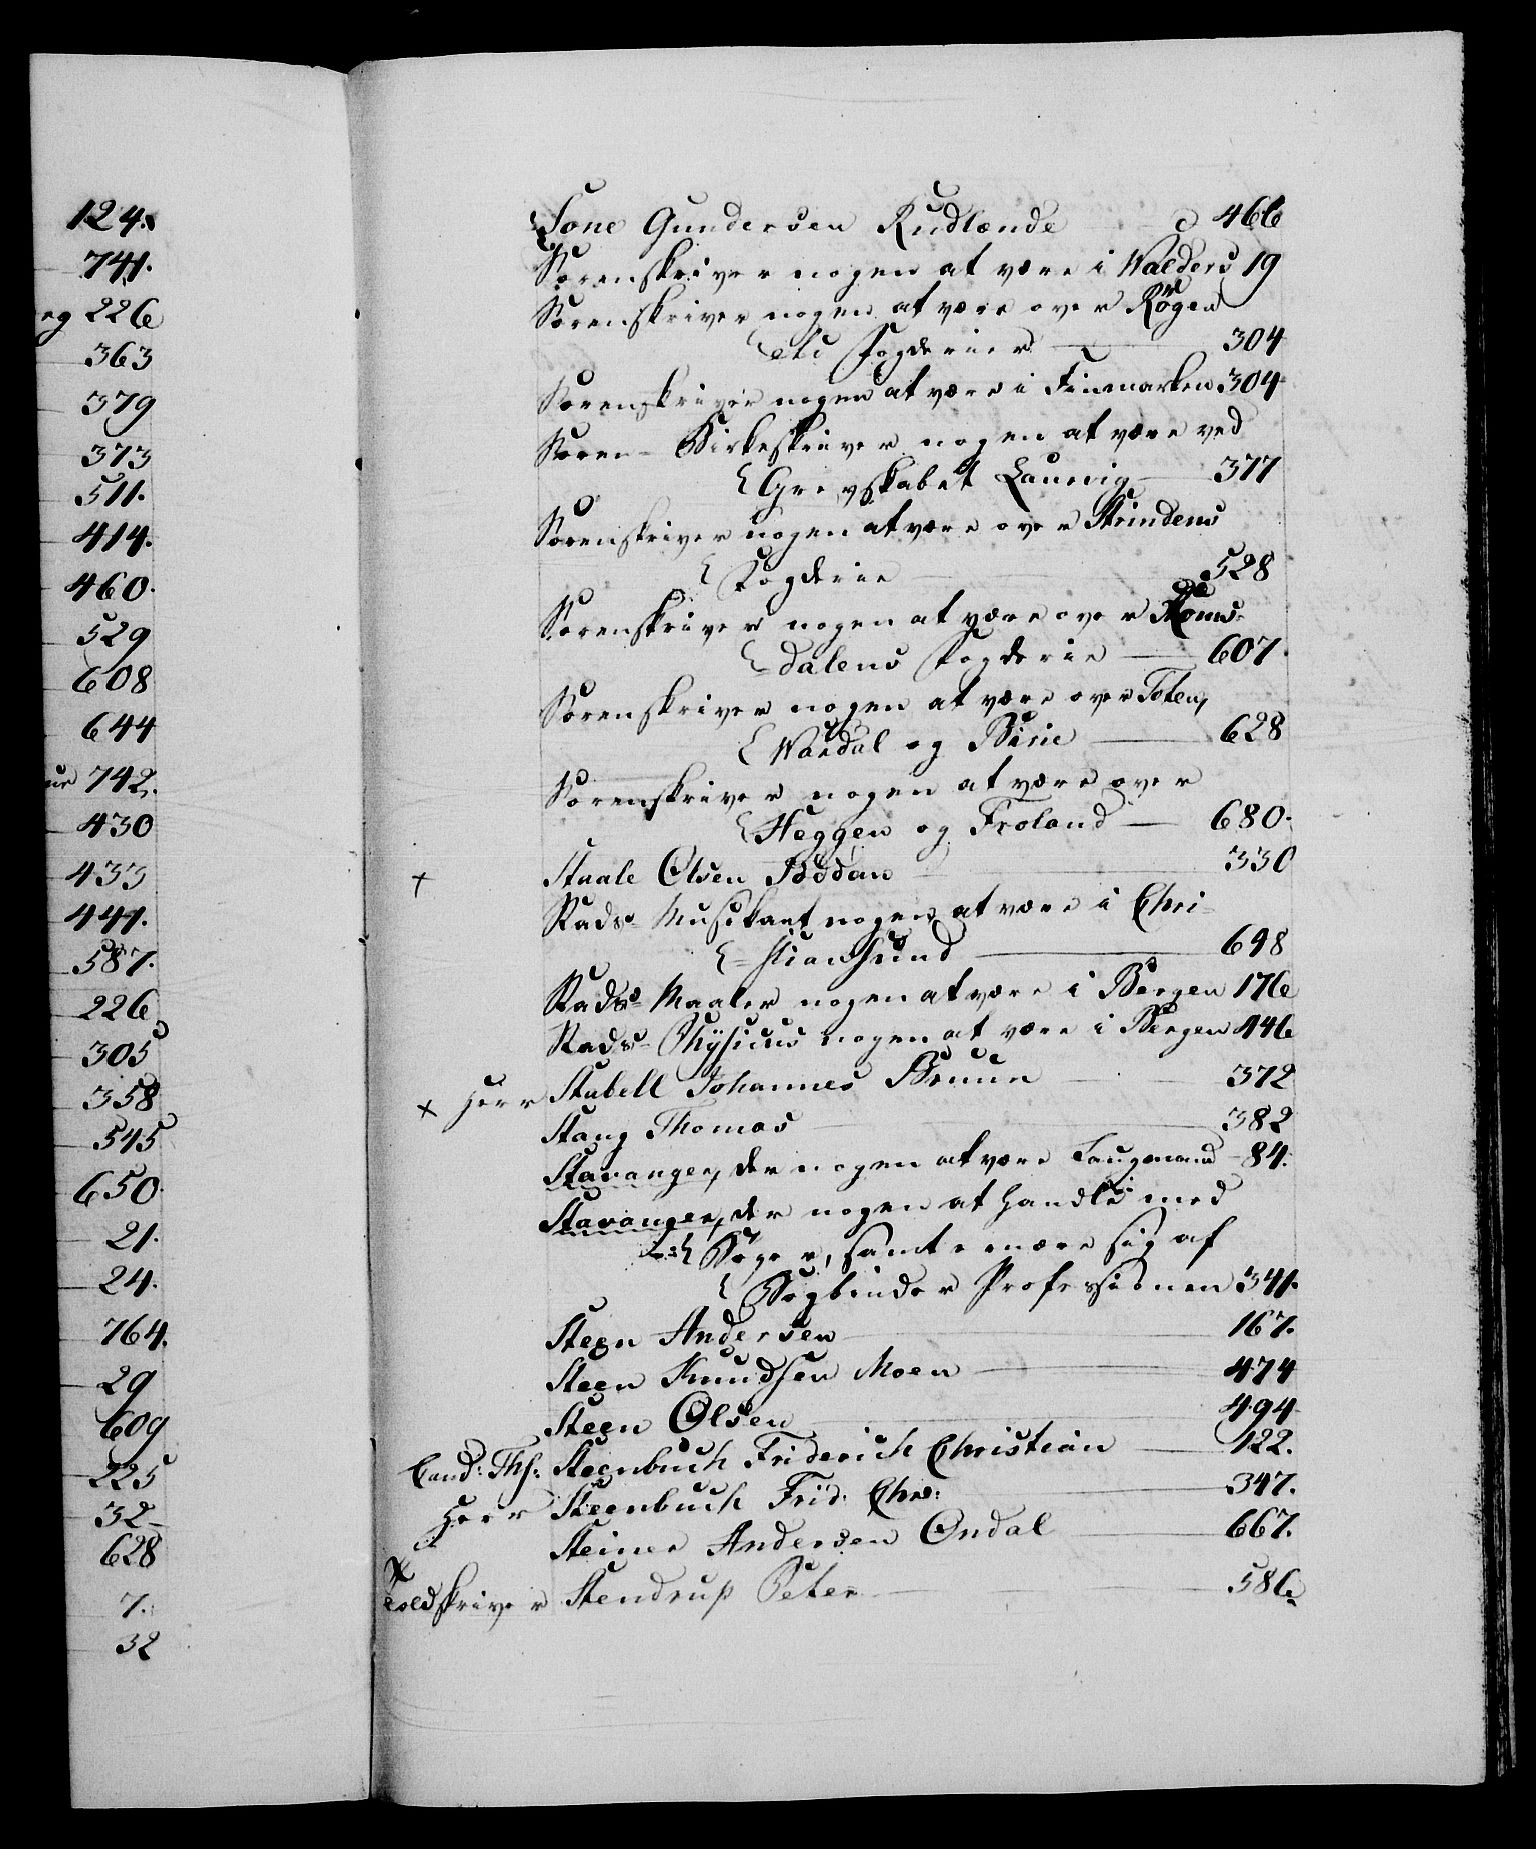 124.
741.
eg 226
363
379
373
511.
414.
460.
529
608
644
742.
430
433
441.
587.
226
305
358
545
650.
21.
24.
764.
29
609
225
32
628
7.
32
Sone Gundersen Rudlænde 466
Sorenskriver nogen at være i Walders 19
Sorenskriver nogen at være over Røgen
etc Fogderier 304
Sorenskriver nogen at være i Finmarken 304
Soren- Birkeskriver nogen at være ved
Grevskabet Laurvig 377
Sorenskriver nogen at være over Strindens
Fogderie 528
Sorenskriver nogen at være over Roms-
dalens Fogderie 607
Sorenskriver nogen at være over Toten,
Wardal og Birie 628
Sorenskriver nogen at være over
Heggen og Froland 680.
+ Staale Olsen Bødan 330
Stads- Musikant nogen at være i Chri-
stiansund 698
Stads- Maaler nogen at være i Bergen 176
Stads- Physicus nogen at være i Bergen 446
x Herr Stabell Johannes Bruun 372
Stang Thomas 382
Stavanger, der nogen at være Laugmand 84.
Stavanger, der nogen at handle med
Bøger, samt ernære sig af
Bogbinder Professionen 341.
Steen Andersen 167.
Steen Knudsen Moen 474
Steen Olsen 494
Cand: Ths: Steenbuch Friderich Christian 422.
Herr Steenbuch Frid: Chr: 347.
Steiner Andersen Ondal 667.
x
Toldskriver Stendrup Peter 586.